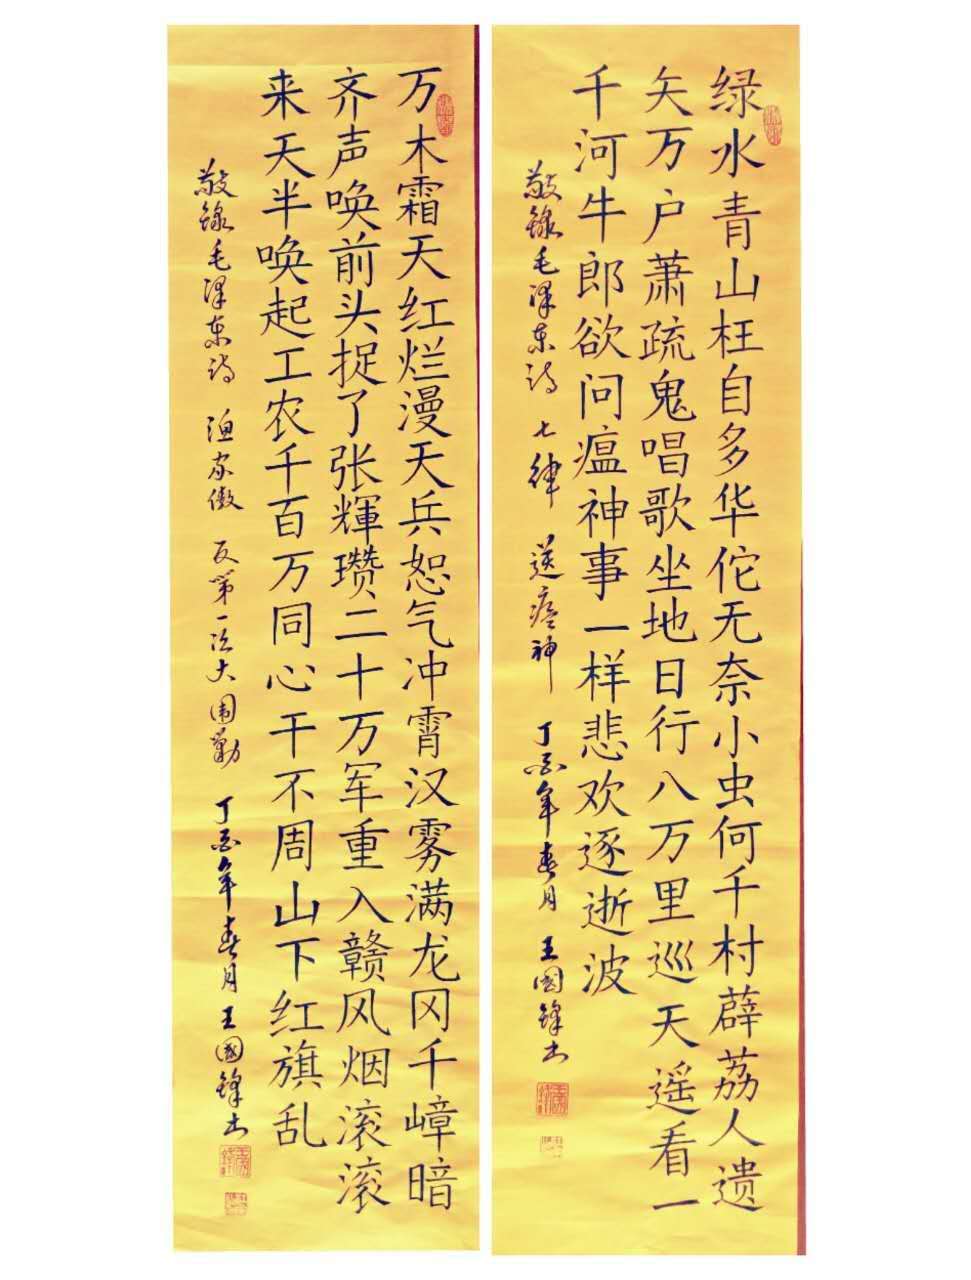 绿水青山枉自多华佗无奈小虫何千村薜荔人遗
矢万户萧疏鬼唱歌坐地日行八万里巡天遥看一
千河牛郎欲问瘟神事一样悲欢逐逝波
敬録毛泽东诗 七律 送瘟神 丁酉年春月 王國锋书
万木霜天红烂漫天兵恕气冲霄汉雾满龙冈千嶂暗
齐声唤前头捉了张輝瓒二十万军重入赣风烟滚滚
来天半唤起工农千百万同心干不周山下红旗乱
敬録毛泽东诗 渔家傲 反第一次大围勦 丁酉年春月 王國锋书